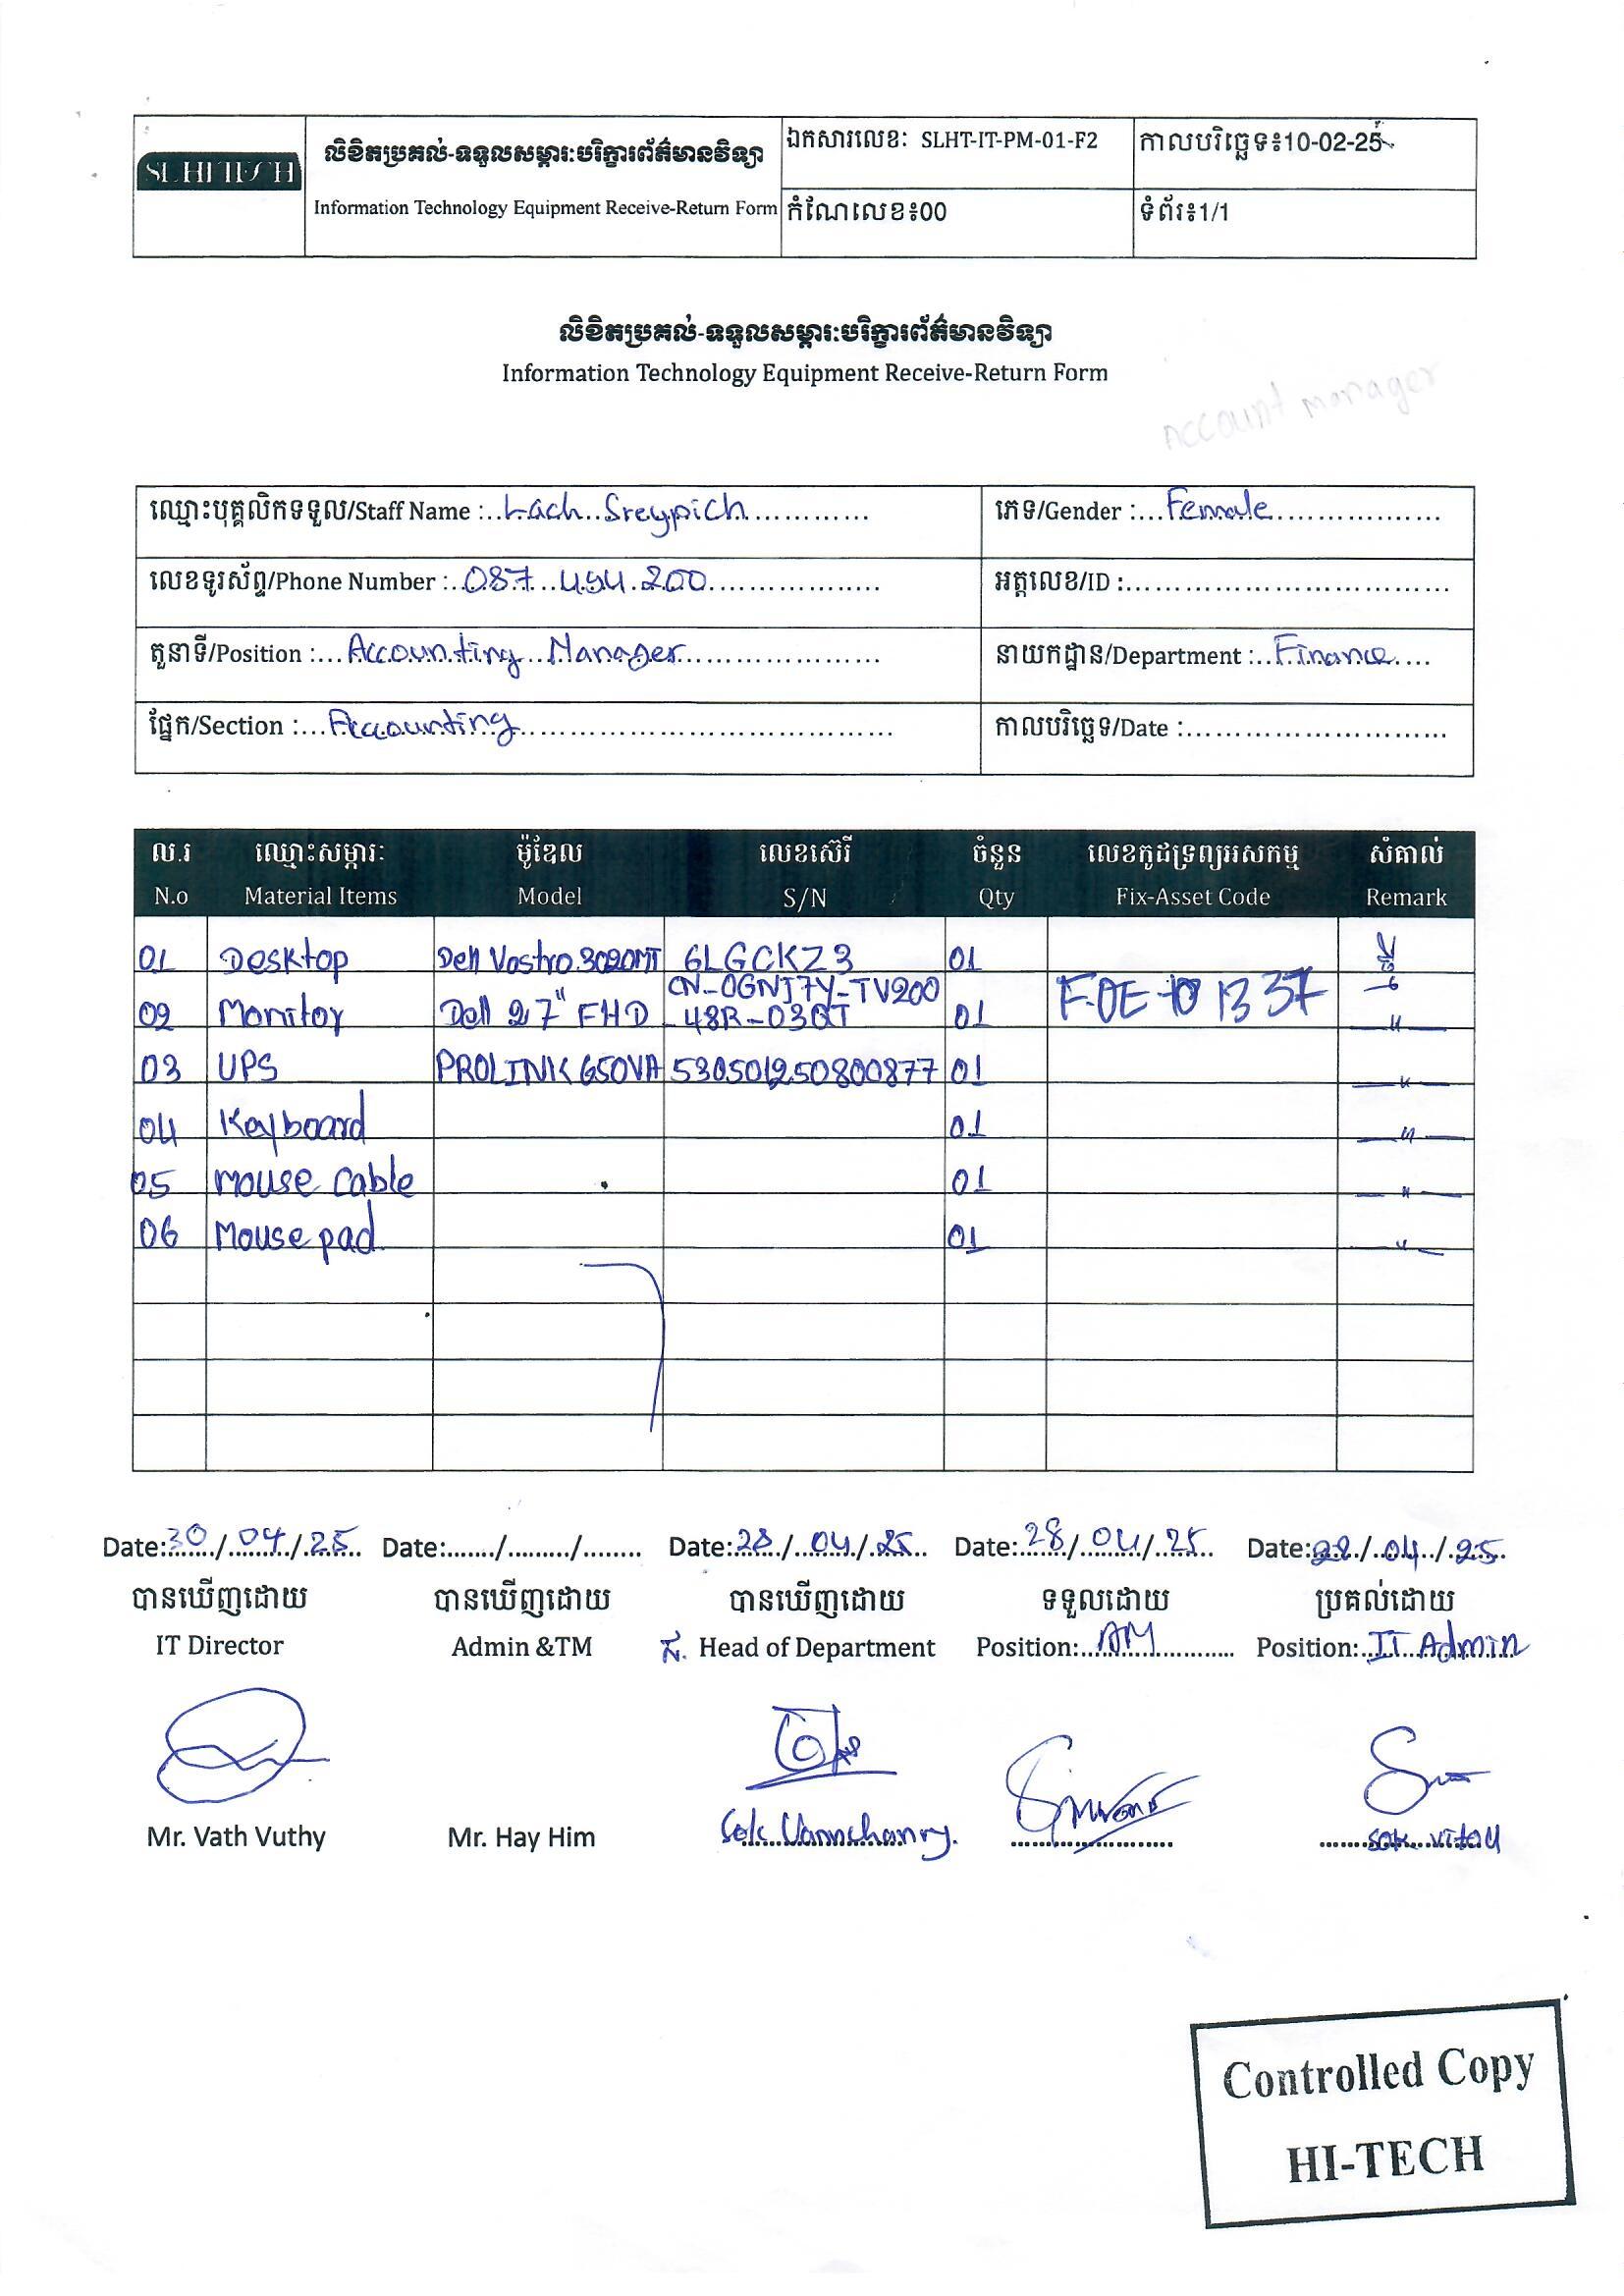 SLHI TECH
លិខិតប្រគល់-ទទួលសម្ភារៈបរិក្ខារព័ត៌មានវិទ្យា
Information Technology Equipment Receive-Return Form
ឯកសារលេខៈ SLHT-IT-PM-01-F2
កាលបរិច្ឆេទ៖10-02-25
កំណែលេខ៖00
ទំព័រ៖1/1
លិខិតប្រគល់-ទទួលសម្ភារៈបរិក្ខារព័ត៌មានវិទ្យា
Information Technology Equipment Receive-Return Form
Account manager
ឈ្មោះបុគ្គលិកទទួល/Staff Name : Lach Sreypich
ភេទ/Gender : Female
លេខទូរស័ព្ទ/Phone Number : 087 454 200
អត្តលេខ/ID :
តួនាទី/Position : Accounting Manager
នាយកដ្ឋាន/Department : Finance
ផ្នែក/Section : Accounting
កាលបរិច្ឆេទ/Date :
ល.រ ឈ្មោះសម្ភារៈ ម៉ូឌែល លេខស៊េរី ចំនួន លេខកូដទ្រព្យអសកម្ម សំគាល់
N.o Material Items Model S/N Qty Fix-Asset Code Remark
01 Desktop Dell Vostro 3020MT 6LGCKZ3 01 ថ្មី
02 Monitor Dell 27" FHD CN-0GNJ7Y-TV200
-48R-03QT 01 F-OE-10 1337 "
03 UPS PROLINK 650VA 530501250800877 01 "
04 Keyboard 01 "
05 Mouse cable 01 "
06 Mouse pad 01 "
Date: 30/04/25 Date:....../........./........ Date: 28/04/25 Date: 28/04/25 Date: 28/04/25
បានឃើញដោយ បានឃើញដោយ បានឃើញដោយ ទទួលដោយ ប្រគល់ដោយ
IT Director Admin &TM Head of Department Position: AM Position: IT Admin
Mr. Vath Vuthy Mr. Hay Him Sok Vannchanry. Sok Vitou
Controlled Copy
HI-TECH